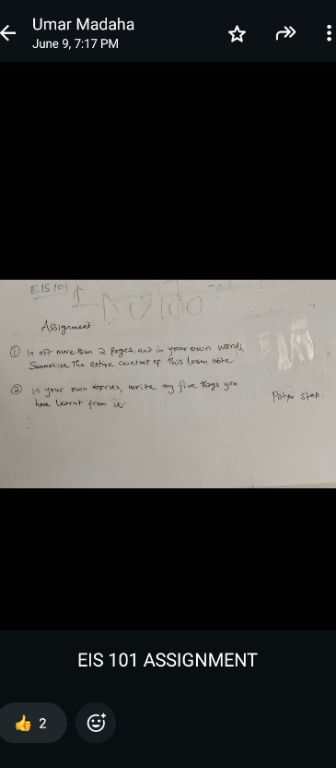 Umar Madaha
June 9, 7:17 PM
EIS 101
Assignment
① In not more than 2 pages, and in your own words,
Summarise the entire content of this lesson note.
② In your own words, write any five things you
have learnt from it.
EIS 101 ASSIGNMENT
👍 2